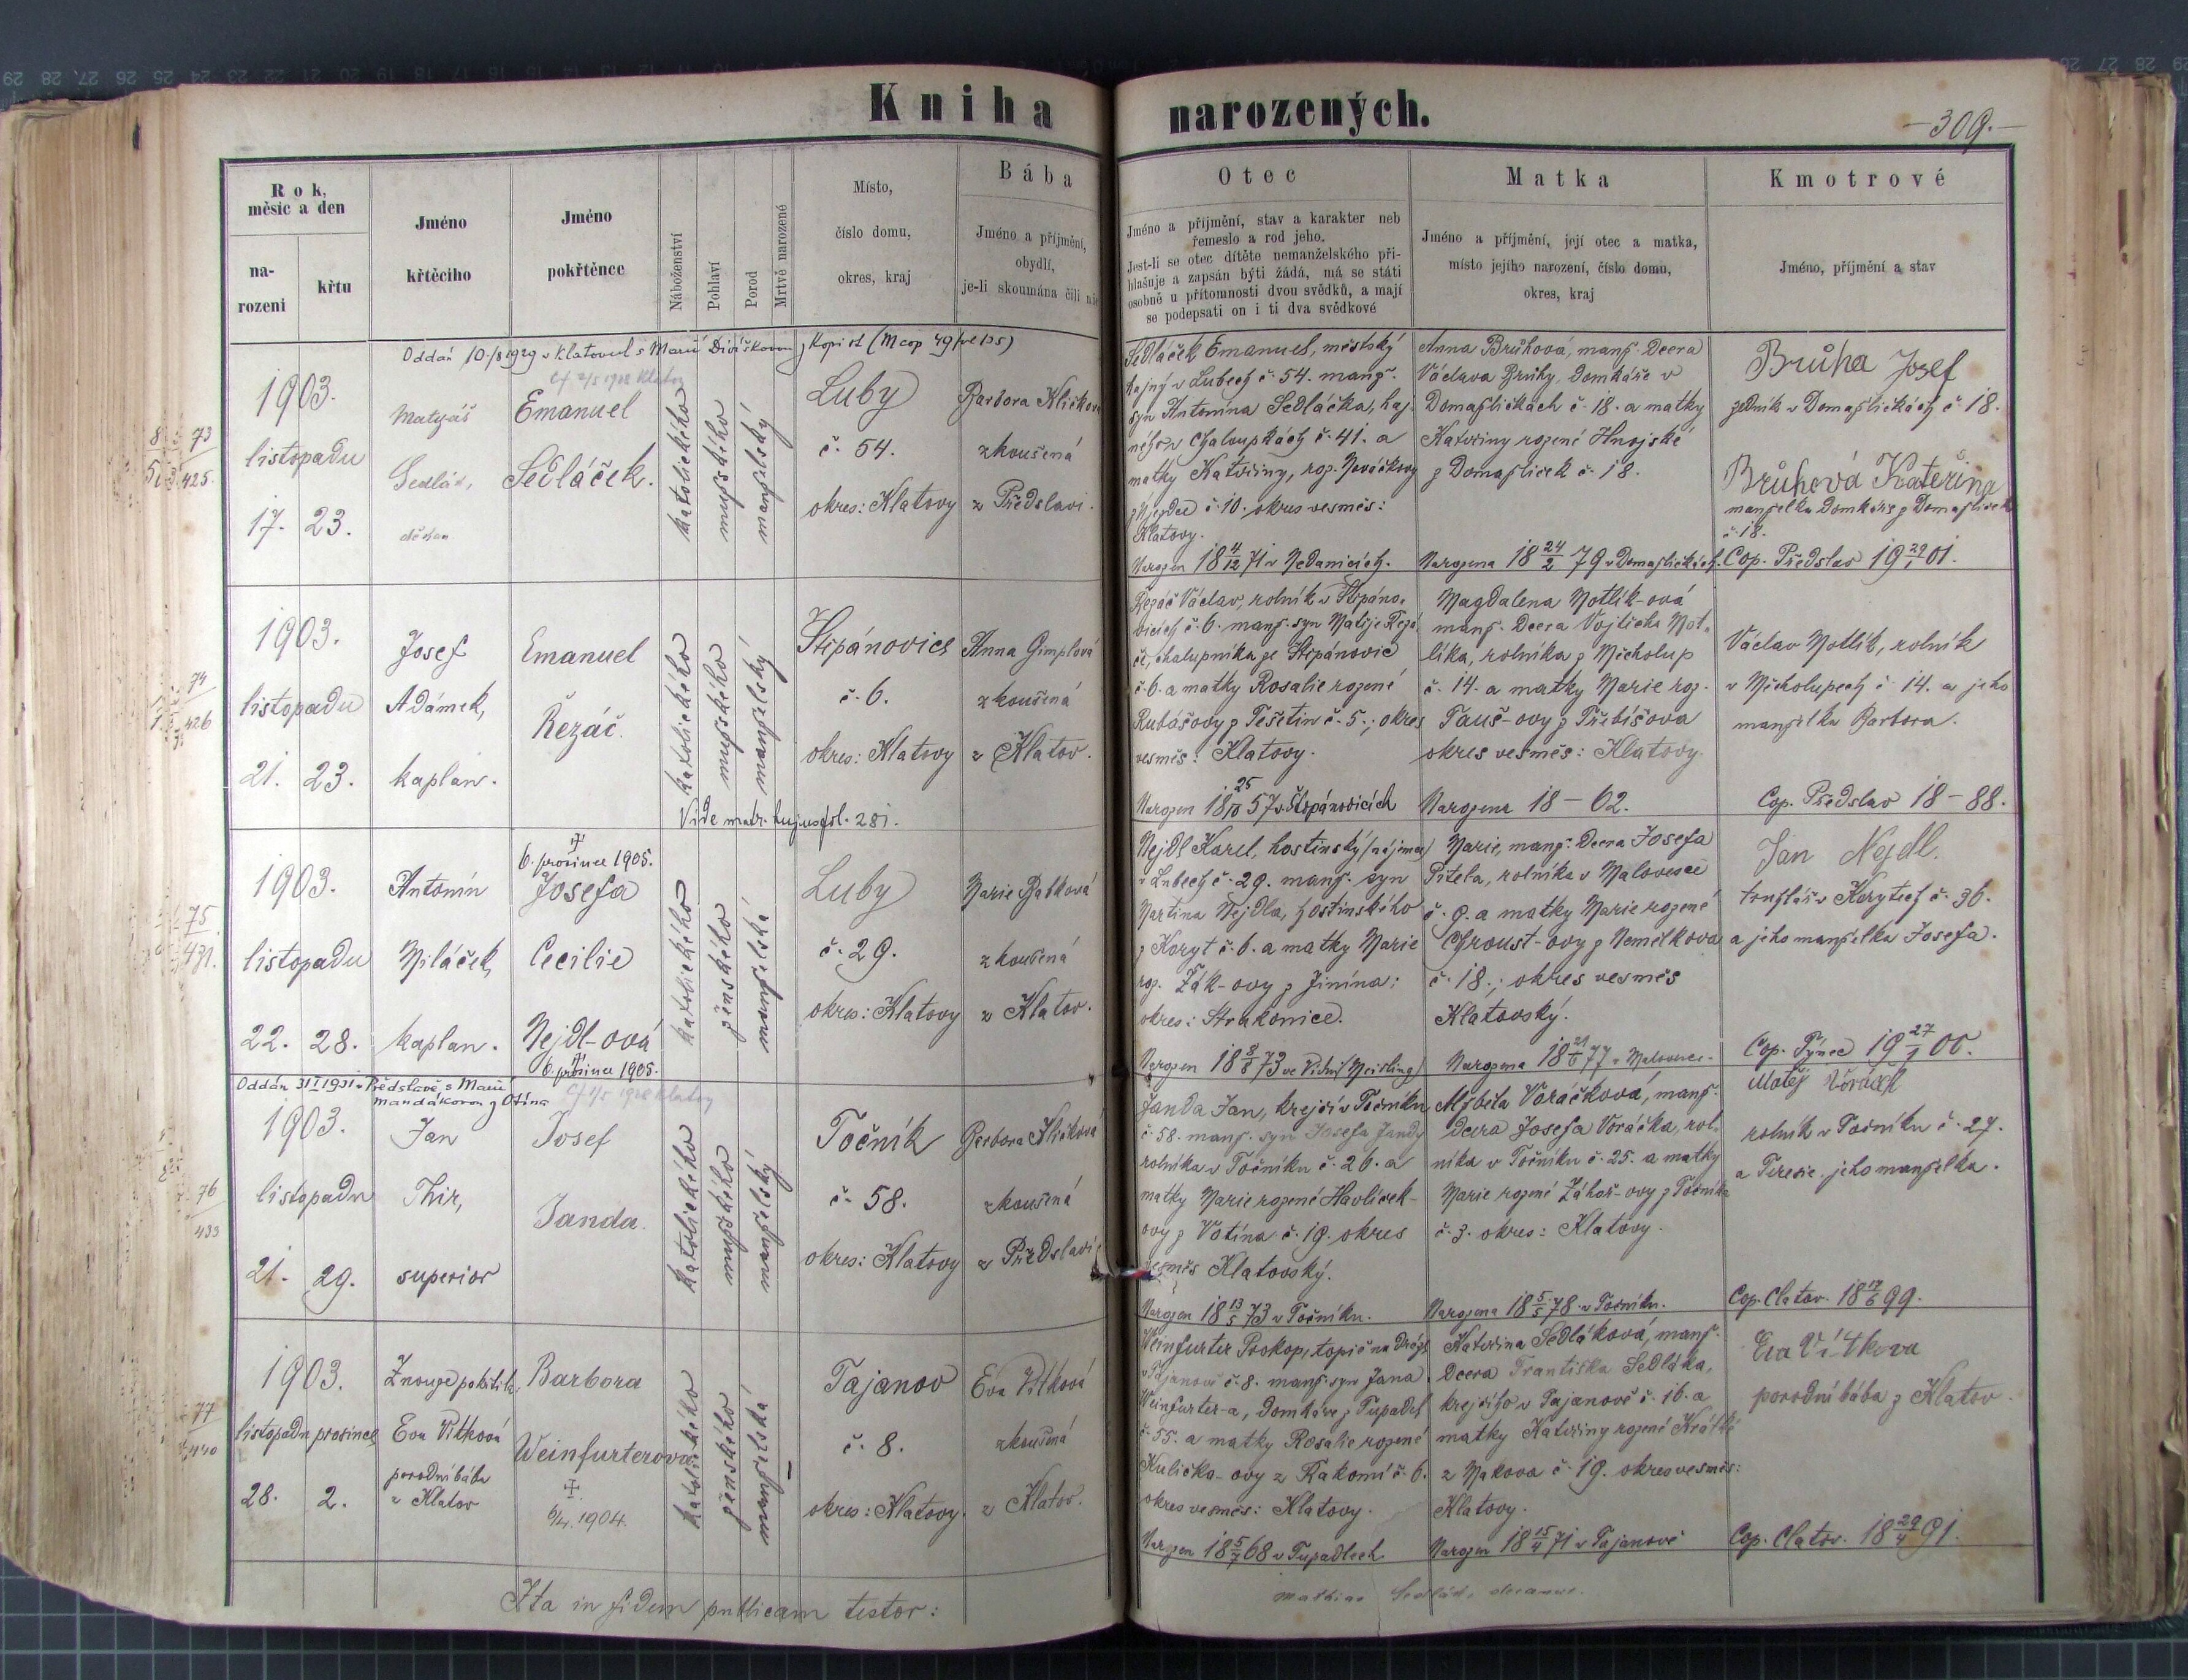 Kniha narozených.
— 309. —
Rok, měsíc a den
na-
rození
křtu
Jméno
křtěcího
Jméno
pokřtěnce
Náboženství
Pohlaví
Porod
Mrtvě narozené
Místo,
číslo domu,
okres, kraj
Bába
Jméno a příjmění,
obydlí,
je-li skoumána čili
Otec
Jméno a příjmění, stav a karakter neb
řemeslo a rod jeho.
Jest-li se otec dítěte nemanželského při-
hlašuje a zapsán býti žádá, má se státi
osobně u přítomnosti dvou svědků, a mají
se podepsati on i ti dva svědkové
Matka
Jméno a příjmění, její otec a matka,
místo jejího narození, číslo domu,
okres, kraj
Kmotrové
Jméno, příjmění a stav
73
425.
1903.
listopadu
17. 23.
Matyáš
Sedlák,
děkan
Emanuel
Sedláček.
katolického
mužského
manželský
Luby
č. 54.
okres: Klatovy
Barbora Kličková
zkoušená
z Předslavi.
Sedláček Emanuel, městský
hajný v Lubech č. 54. manž.
syn Antonína Sedláčka, haj
ného v Chaloupkách č. 41. a
matky Kateřiny, roz. Nováčkovy
č. 10. okres vesměs:
Klatovy.
Narozen 18 4/12 71 v Nedanicích.
Anna Brůhová, manž. dcera
Václava Brůhy, domkáře v
Domažličkách č. 18. a matky
Kateřiny rozené Hnojské
z Domažliček č. 18.
Narozena 18 24/2 79 v Domažličkách.
Brůha Josef
zedník v Domažličkách č. 18.
Brůhová Kateřina
manželka domkáře z Domažliček
č. 18.
Cop. Předslav 19 29/1 01.
74
426
1903.
listopadu
21. 23.
Josef
Adámek,
kaplan.
Emanuel
Řezáč.
katolického
mužského
manželský
Štěpánovice
č. 6.
okres: Klatovy
Anna Gimplová
zkoušená
z Klatov.
Řezáč Václav, rolník v Štěpáno-
vicích č. 6. manž. syn Matěje Řezá
če, chalupníka ze Štěpánovic
č. 6. a matky Rosalie rozené
Rubášovy z Tešetin č. 5.; okres
vesměs: Klatovy.
Narozen 18 25/10 57 v Štěpánovicích
Magdalena Motlík-ová
manž. dcera Vojtěcha Mot-
líka, rolníka z Měcholup
č. 14. a matky Marie roz.
Tauš-ovy z Třebíšova
okres vesměs: Klatovy.
Narozena 18 — 62.
Václav Motlík, rolník
v Měcholupech č. 14. a jeho
manželka Barbora.
Cop. Předslav 18 — 88.
Vide matr. hujus fol. 281.
75
431.
1903.
listopadu
22. 28.
Antonín
Miláček,
kaplan.
6. prosince 1905.
Josefa
Cecilie
Nejdl-ová
6. prosince 1905.
katolického
ženského
manželská
Luby
č. 29.
okres: Klatovy
Marie Babková
zkoušená
z Klatov.
Nejdl Karel, hostinský (nájemce)
v Lubech č. 29. manž. syn
Martina Nejdla, hostinského
z Koryt č. 6. a matky Marie
roz. Žák-ovy z Jinína:
okres: Strakonice.
Narozen 18 8/8 73 ve Vídni (Meisling)
Marie, manž. dcera Josefa
Pitela, rolníka v Malovesce
č. 9. a matky Marie rozené
Chroust-ovy z Nemilkova
č. 18.; okres vesměs
Klatovský.
Narozena 18 21/6 77 v Malovesce.
Jan Nejdl.
truhlář v Korytech č. 36.
a jeho manželka Josefa.
Cop. Týnec 19 27/1 00.
Oddán 31/I 1931 v Předslavě s Marií
Mandákovou z Otína
76
433
1903.
listopadu
21. 29.
Jan
Thir,
superior
Josef
Janda.
katolického
mužského
manželský
Točník
č. 58.
okres: Klatovy
Barbora Kličková
zkoušená
z Předslavi
Janda Jan, krejčí v Točníku
č. 58. manž. syn Josefa Jandy
rolníka v Točníku č. 26. a
matky Marie rozené Havlíček-
ovy z Votína č. 19. okres
vesměs Klatovský.
Narozen 18 13/5 73 v Točníku.
Alžběta Voráčková, manž.
dcera Josefa Voráčka, rol.
níka v Točníku č. 25. a matky
Marie rozené Záhoř-ovy z Točníka
č. 3. okres: Klatovy.
Narozena 18 5/5 78 v Točníku.
Matěj Voráček
rolník v Točníku č. 27.
a Terezie, jeho manželka.
Cop. Clatov. 18 17/6 99.
77
440
1903.
listopadu prosince
28. 2.
Z nouze pokřtila
Eva Vítková
porodní bába
z Klatov
Barbora
Weinfurterova
6/4. 1904.
katolického
ženského
manželská
Tajanov
č. 8.
okres: Klatovy.
Eva Vítková
zkoušená
z Klatov.
Weinfurter Prokop, topič na dráze
v Tajanově č. 8. manž. syn Jana
Weinfurter-a, domkáře z Tupadel
č. 55. a matky Rosalie rozené
Kulička-ovy z Kakomí č. 6.
okres vesměs: Klatovy.
Narozen 18 5/7 68 v Tupadlech
Kateřina Sedláková, manž.
dcera Františka Sedláka,
krejčího v Tajanově č. 16. a
matky Kateřiny rozené Krátké
z Makova č. 19. okres vesměs:
Klatovy.
Narozen 18 15/4 71 v Tajanově
Eva Vítkova
porodní bába z Klatov.
Cop. Clatov. 18 29/4 91.
Ita in fidem publicam testor:
Mathias Sedlák, decanus.